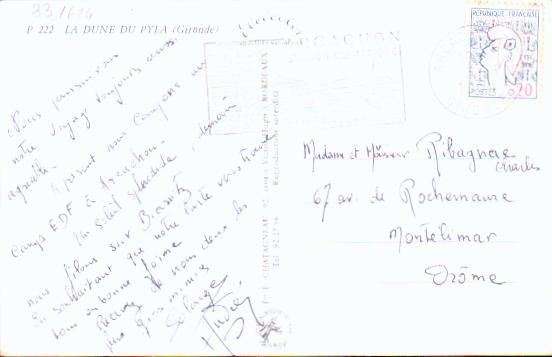 83/1624
P 222 LA DUNE DU PYLA (Gironde)
Nous poursuivons
notre voyage toujours aussi
agréable.
A présent nous campons au
camp EDF à Arcachon.
Un soleil splendide, demain
nous filons sur Biarritz
En souhaitant que notre carte vous trouve
tous en bonne forme
Recevez de nous deux les
plus gros mimis
Solange
André
CHATAGNEAU BORDEAUX
Reproduction interdite
Tél. 92.27.96
ARCACHON
REPUBLIQUE FRANÇAISE
0,20
POSTES
Madame et Monsieur Ribagnac
Charles
67 av. de Rochemaure
Montélimar
Drôme